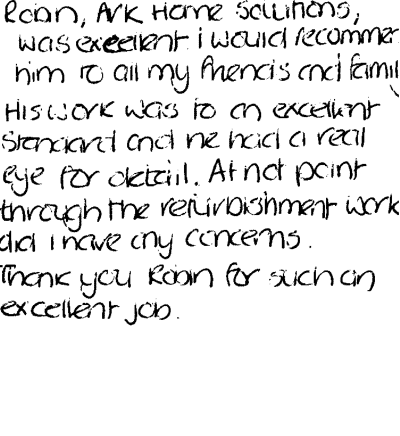 Robin, Ark Home Solutions,
was excellent i would recommen
him to all my friends and family
His work was to an excellent
standard and he had a real
eye for detail. At not point
through the refurbishment work
did i have any concerns.
Thank you Robin for such an
excellent job.